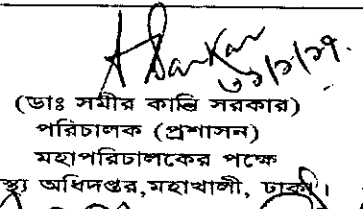 A Sarkar
৩১/১/১৭
(ডাঃ সমীর কান্তি সরকার)
পরিচালক (প্রশাসন)
মহাপরিচালকের পক্ষে
স্থ্য অধিদপ্তর,মহাখালী, ঢাকা।